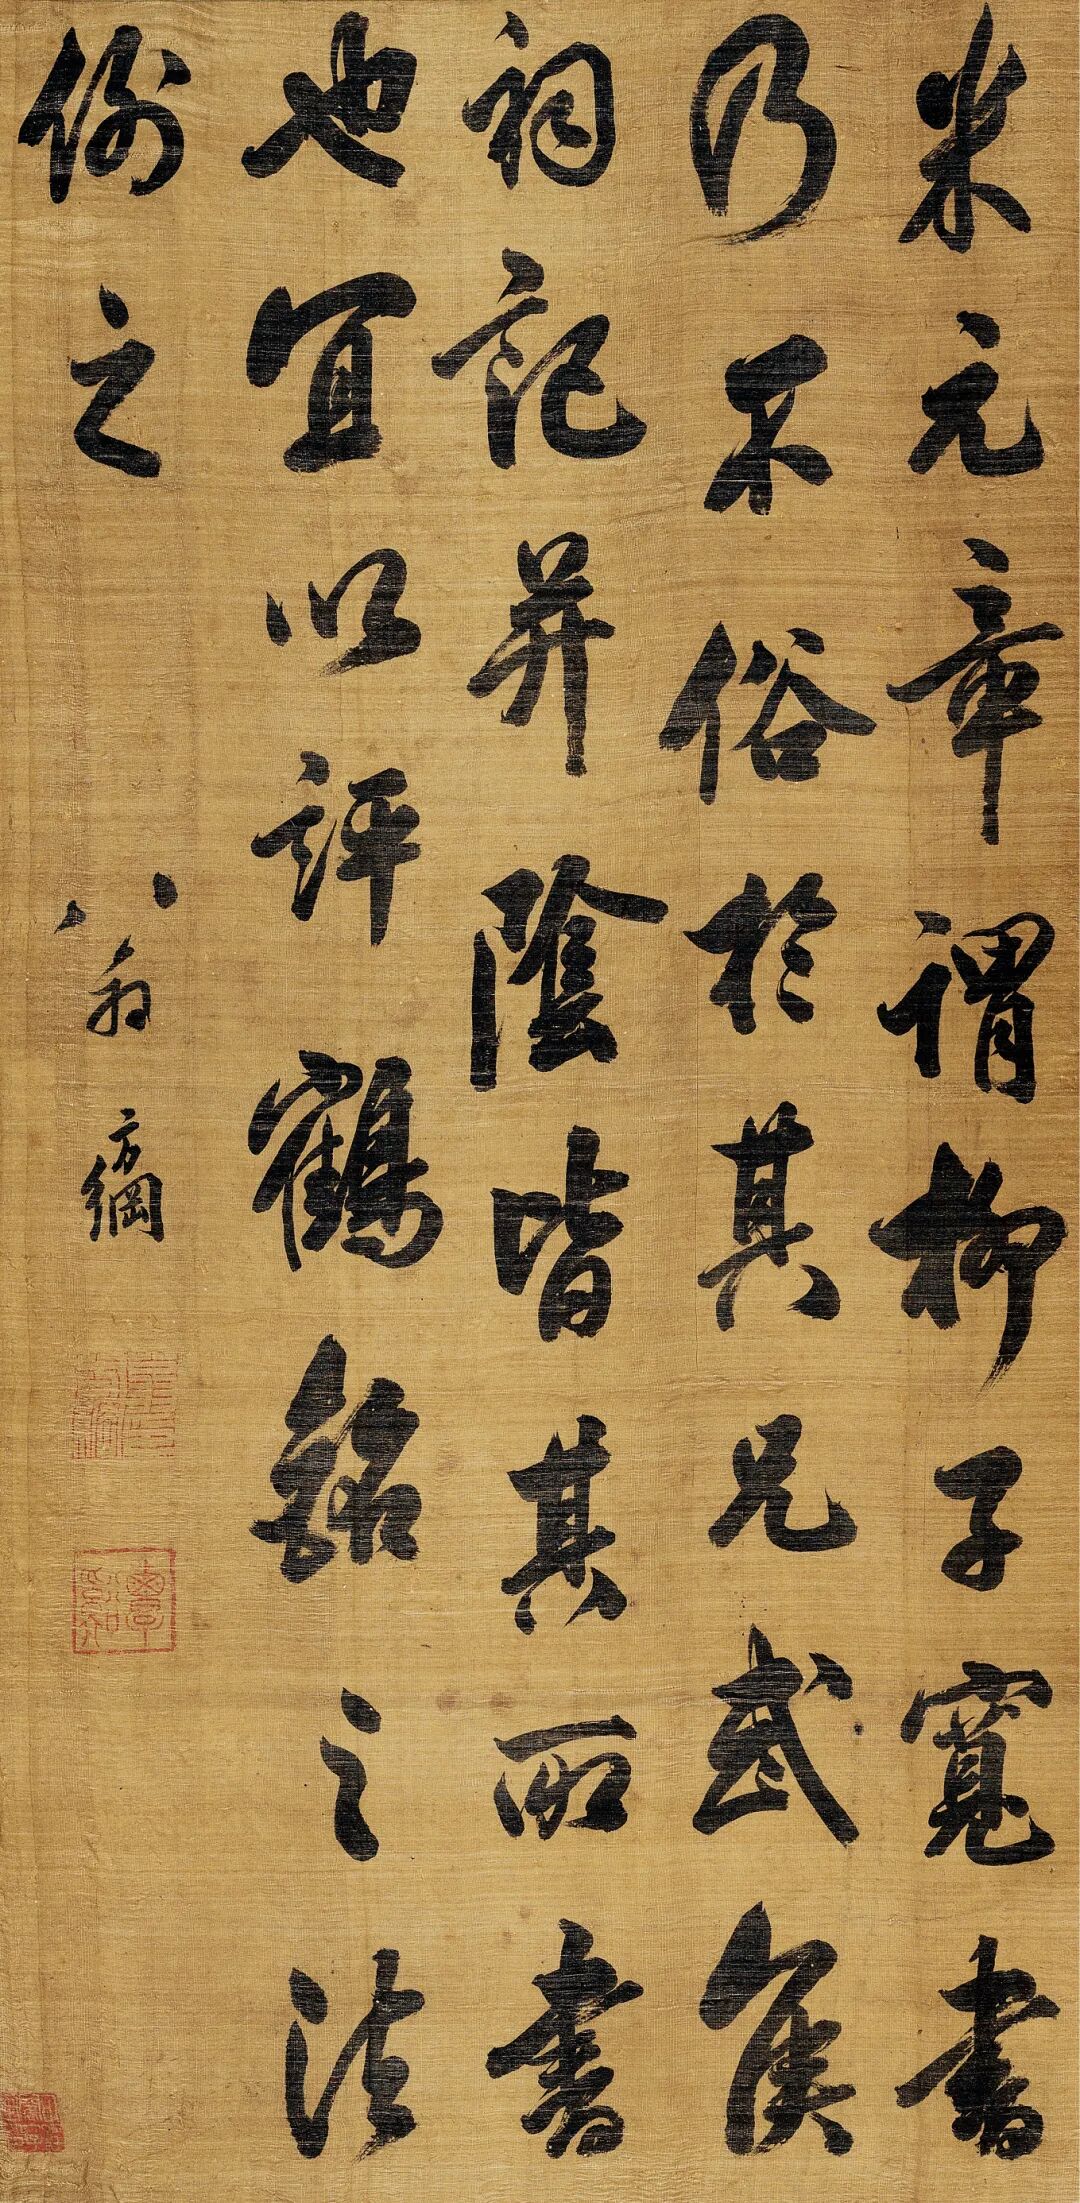 米元章謂柳子寬書
乃不俗於其兄武侯
祠記并陰皆其所書
也宜以評鶴銘之法
衡之
翁方綱